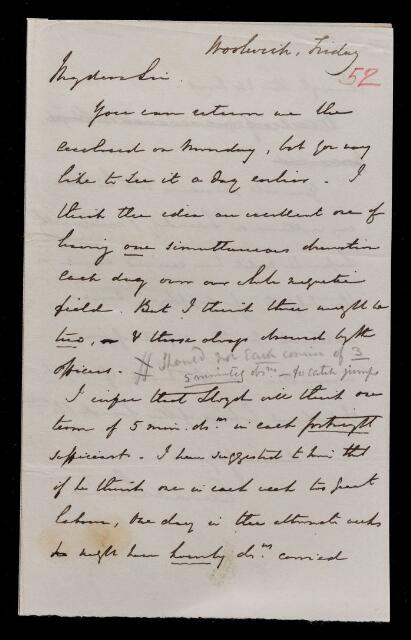 Woolwich, Friday
52
My dear Sir
You can return me the
enclosed on Monday, but you may
like to see it a day earlier. I
think the idea an excellent one of
having one simultaneous observation
each day over our whole magnetic
field. But I think there might be
two, & those always observed by the
officers.
# Should not each consist of 3
5 minutes obsns - to catch jumps
I infer that Lloyd will think one
term of 5 min. obns in each fortnight
sufficient. I have suggested to him that
if he thinks one in each week too great
labour, one day in the alternate weeks
might have hourly obns carried